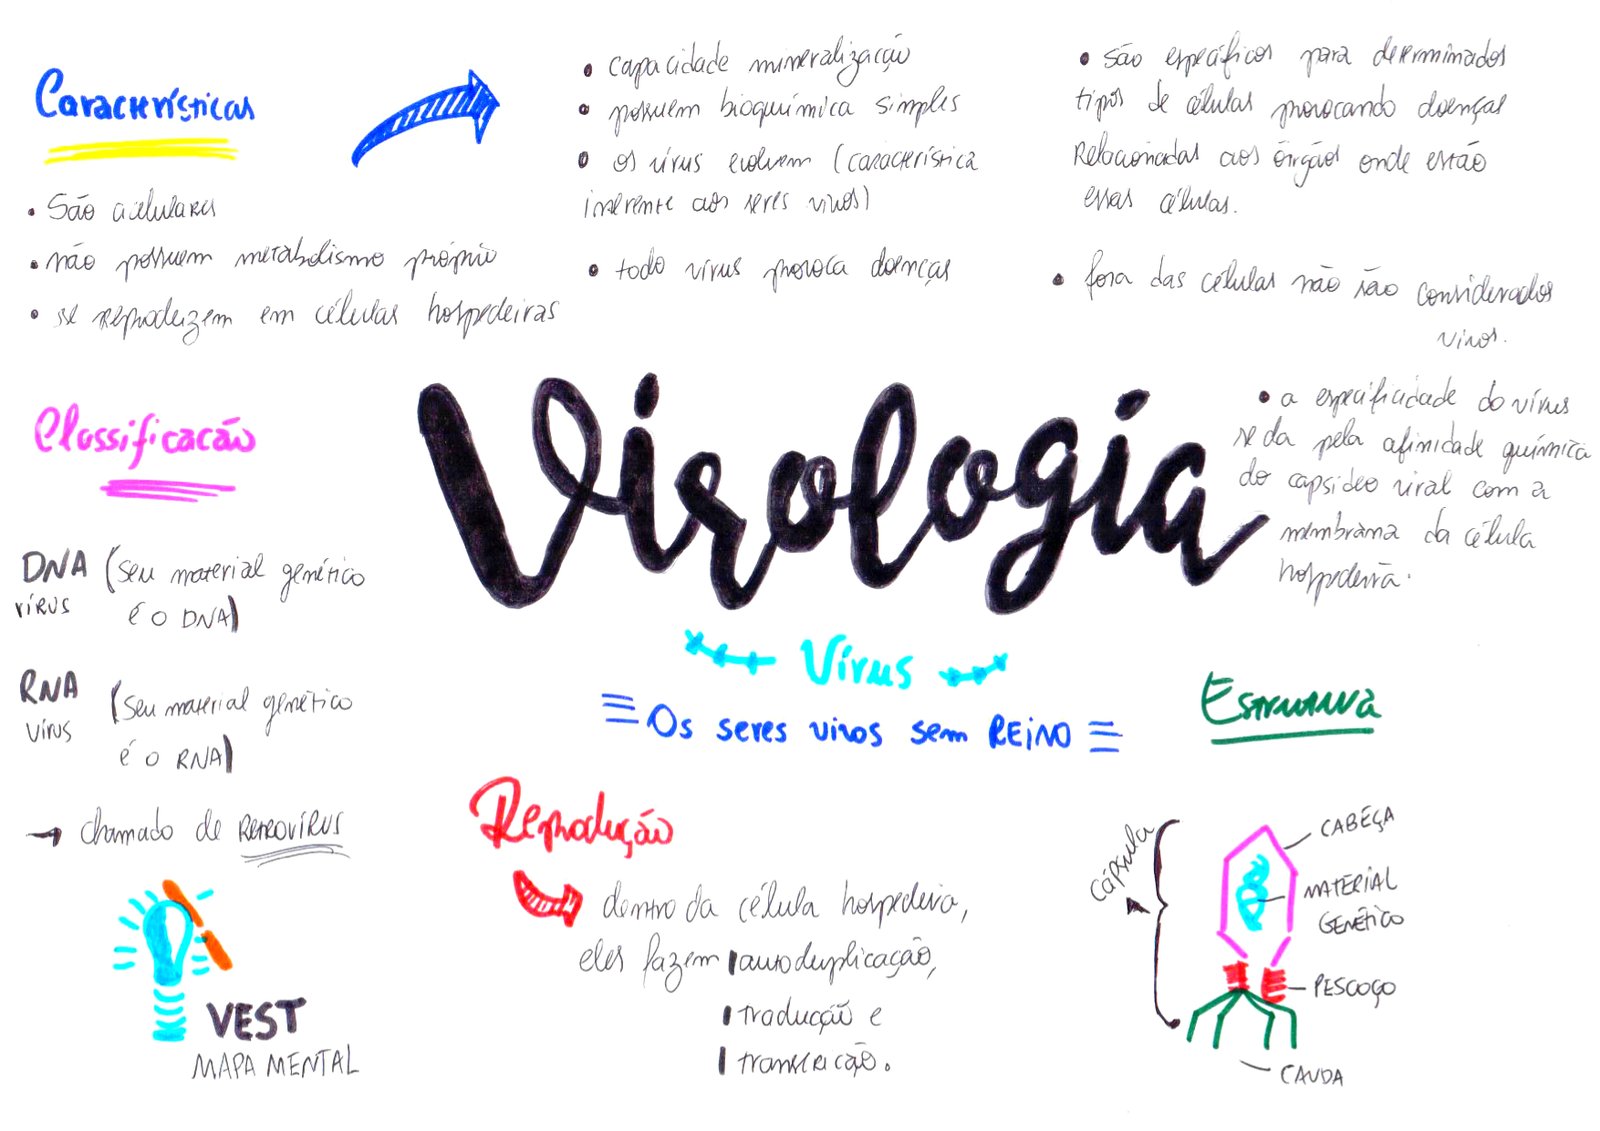 Características
• São acelulares
• não possuem metabolismo próprio
• se reproduzem em células hospedeiras
• capacidade mineralização
• possuem bioquímica simples
• os vírus evoluem (característica
inerente aos seres vivos)
• todo vírus provoca doenças
• são específicos para determinados
tipos de células provocando doenças
relacionadas aos órgãos onde estão
essas células.
• fora das células não são considerados
vivos.
• a especificidade do vírus
se da pela afinidade química
do capsídeo viral com a
membrana da célula
hospedeira.
Virologia
Vírus
Os seres vivos sem REINO
Classificação
DNA (seu material genético
vírus é o DNA)
RNA (seu material genético
vírus é o RNA)
→ chamado de RETROVÍRUS
VEST
MAPA MENTAL
Reprodução
dentro da célula hospedeira,
eles fazem autoduplicação,
tradução e
transcrição.
Estrutura
Cápsula
CABEÇA
MATERIAL
GENÉTICO
PESCOÇO
CAUDA